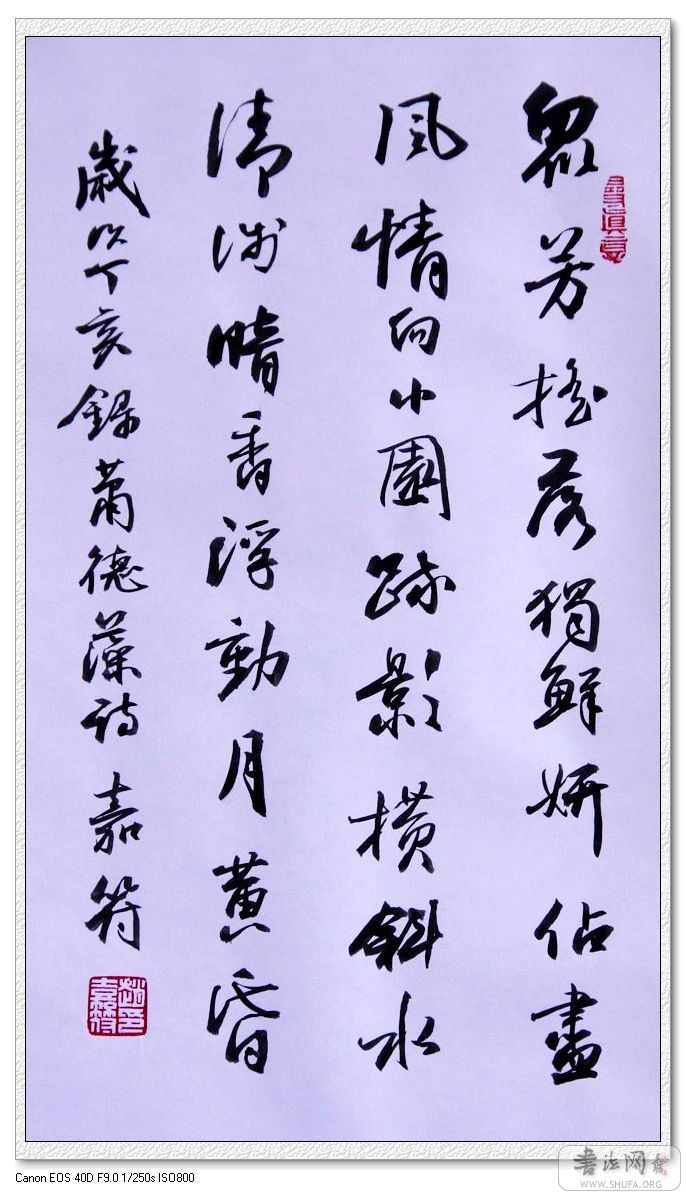 眾芳搖落獨鮮妍佔盡
風情向小園疏影橫斜水
清淺暗香浮動月黃昏
歲次丁亥錄蕭德藻詩 嘉符
Canon EOS 40D F9.0 1/250s ISO800
书法网
WWW.SHUFA.ORG